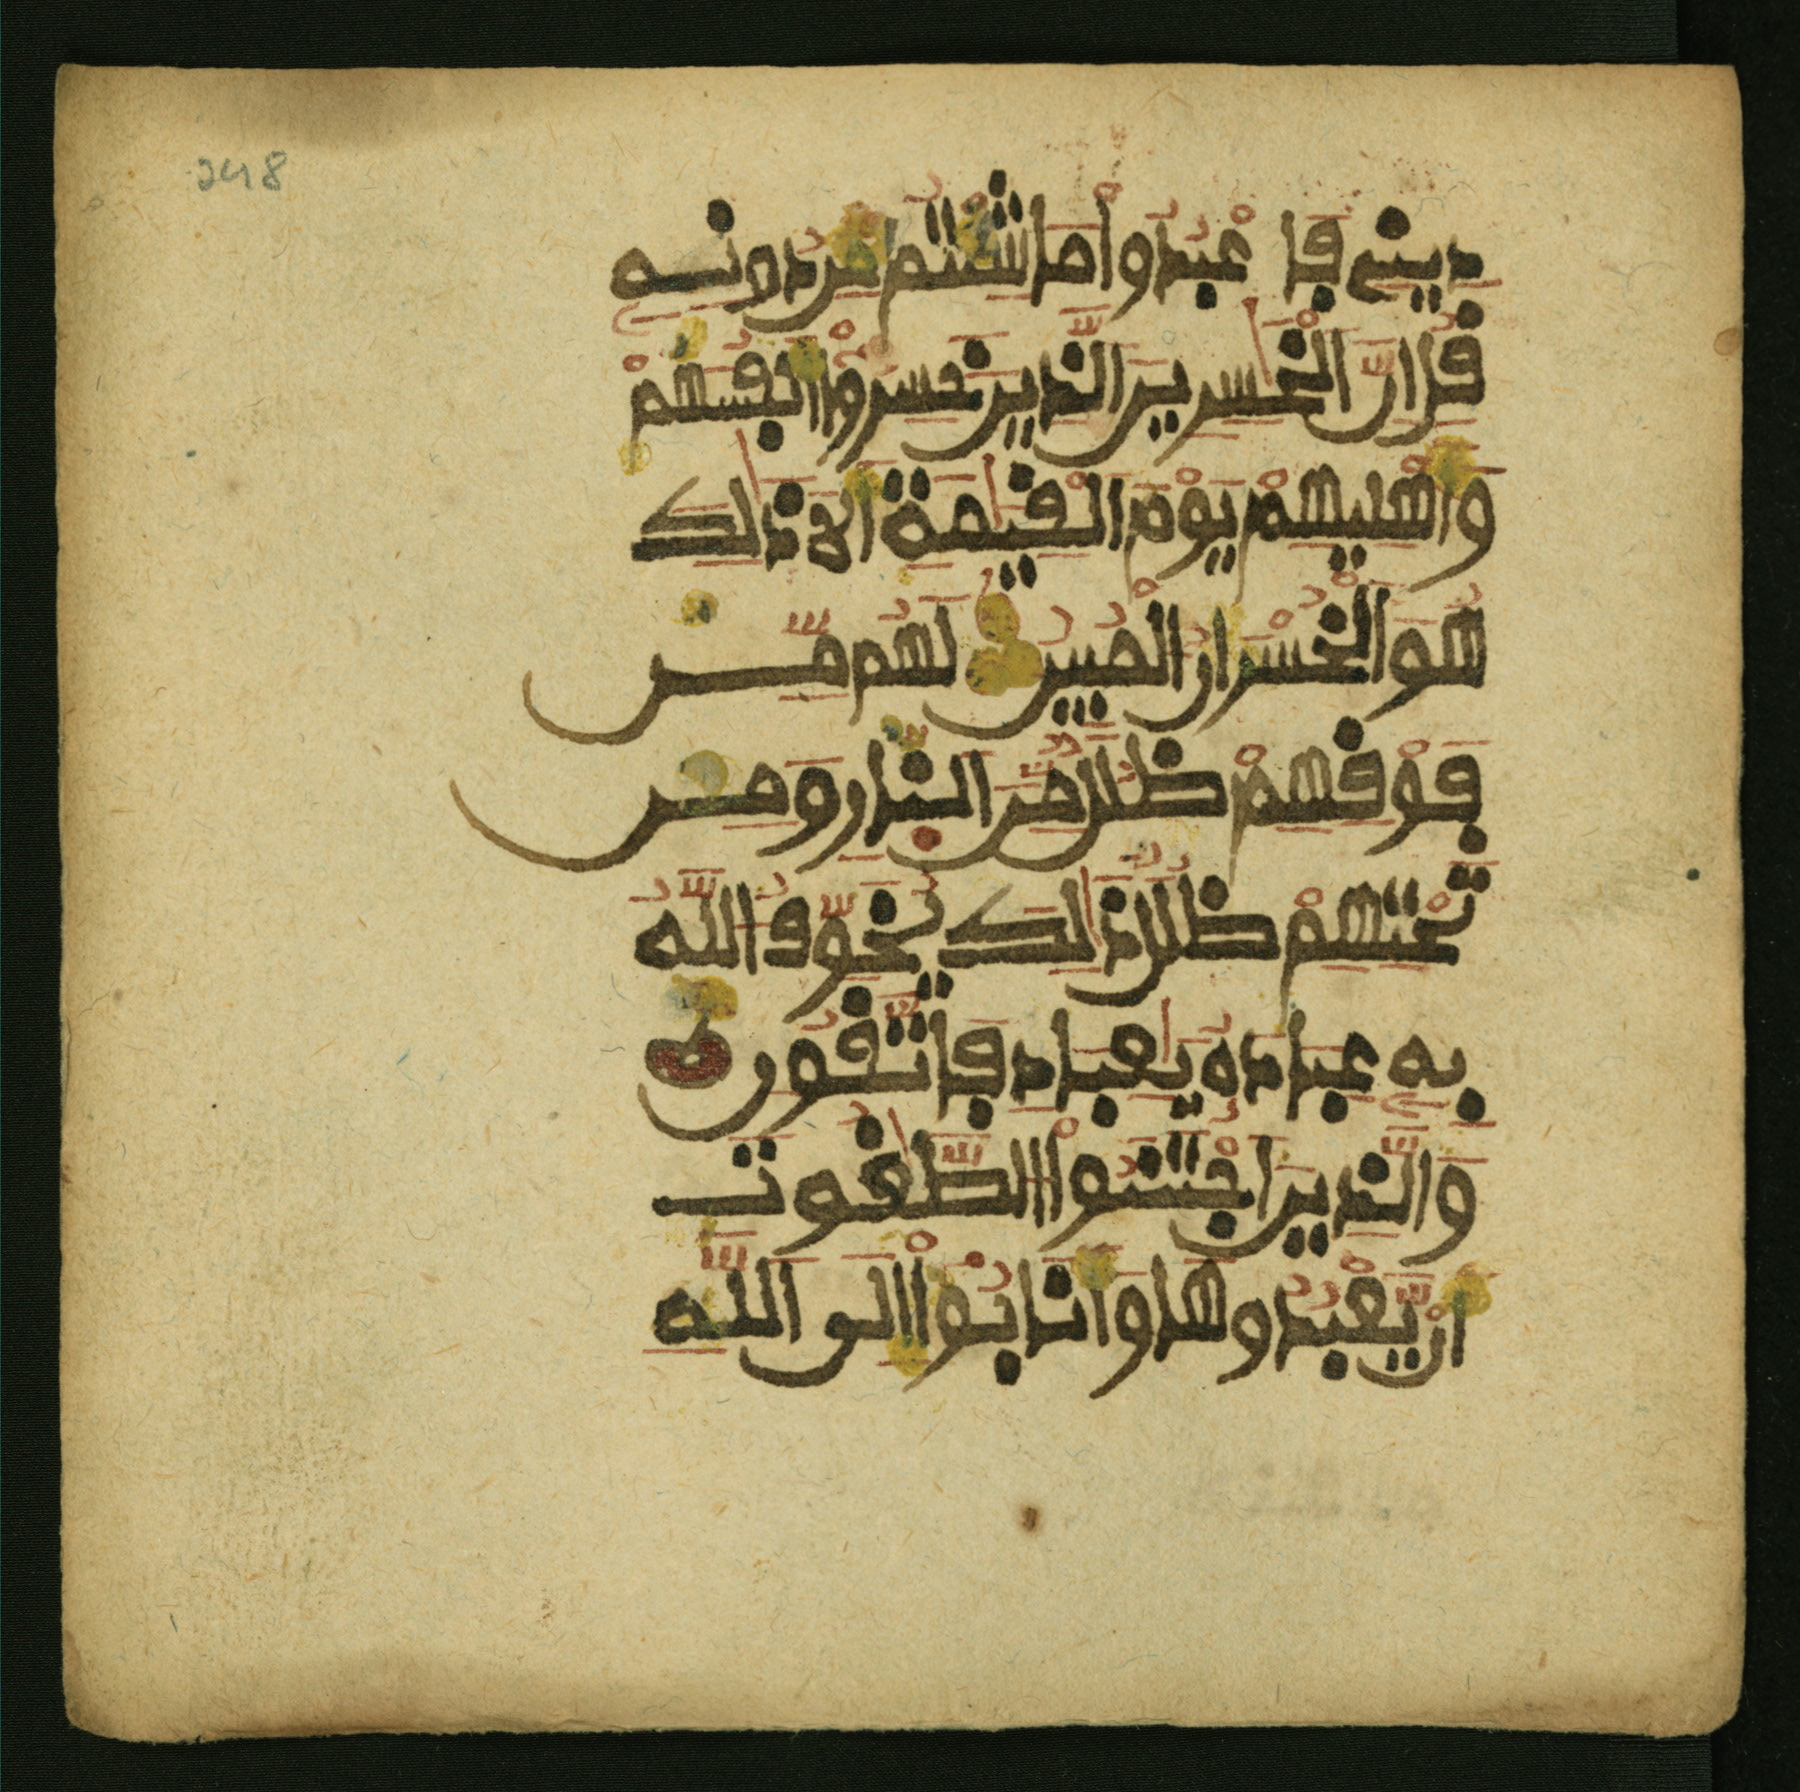 248
ديني فاعبدوا ما شئتم من دونه
قل ان الخسرين الذين خسروا انفسهم
واهليهم يوم القيمة الا ذلك
هو الخسران المبين لهم من
فوقهم ظلل من النار ومن
تحتهم ظلل ذلك يخوف الله
به عباده يعباد فاتقون
والذين اجتنبوا الطغوت
ان يعبدوها وانابوا الى الله